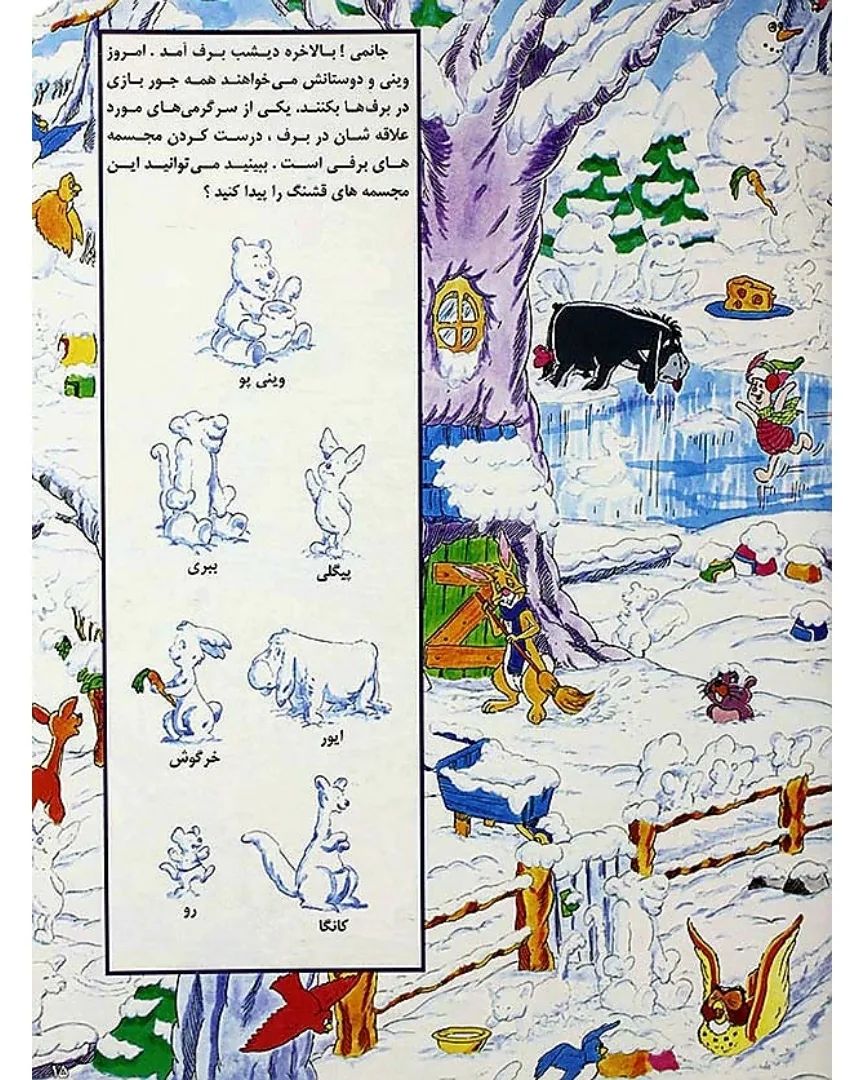 جانمی ! بالاخره دیشب برف آمد . امروز
وینی و دوستانش می‌خواهند همه جور بازی
در برف‌ها بکنند. یکی از سرگرمی‌های مورد
علاقه شان در برف ، درست کردن مجسمه
های برفی است . ببینید می‌توانید این
مجسمه های قشنگ را پیدا کنید ؟
وینی پو
پیگلی
ببری
ایور
خرگوش
کانگا
رو
۱۵